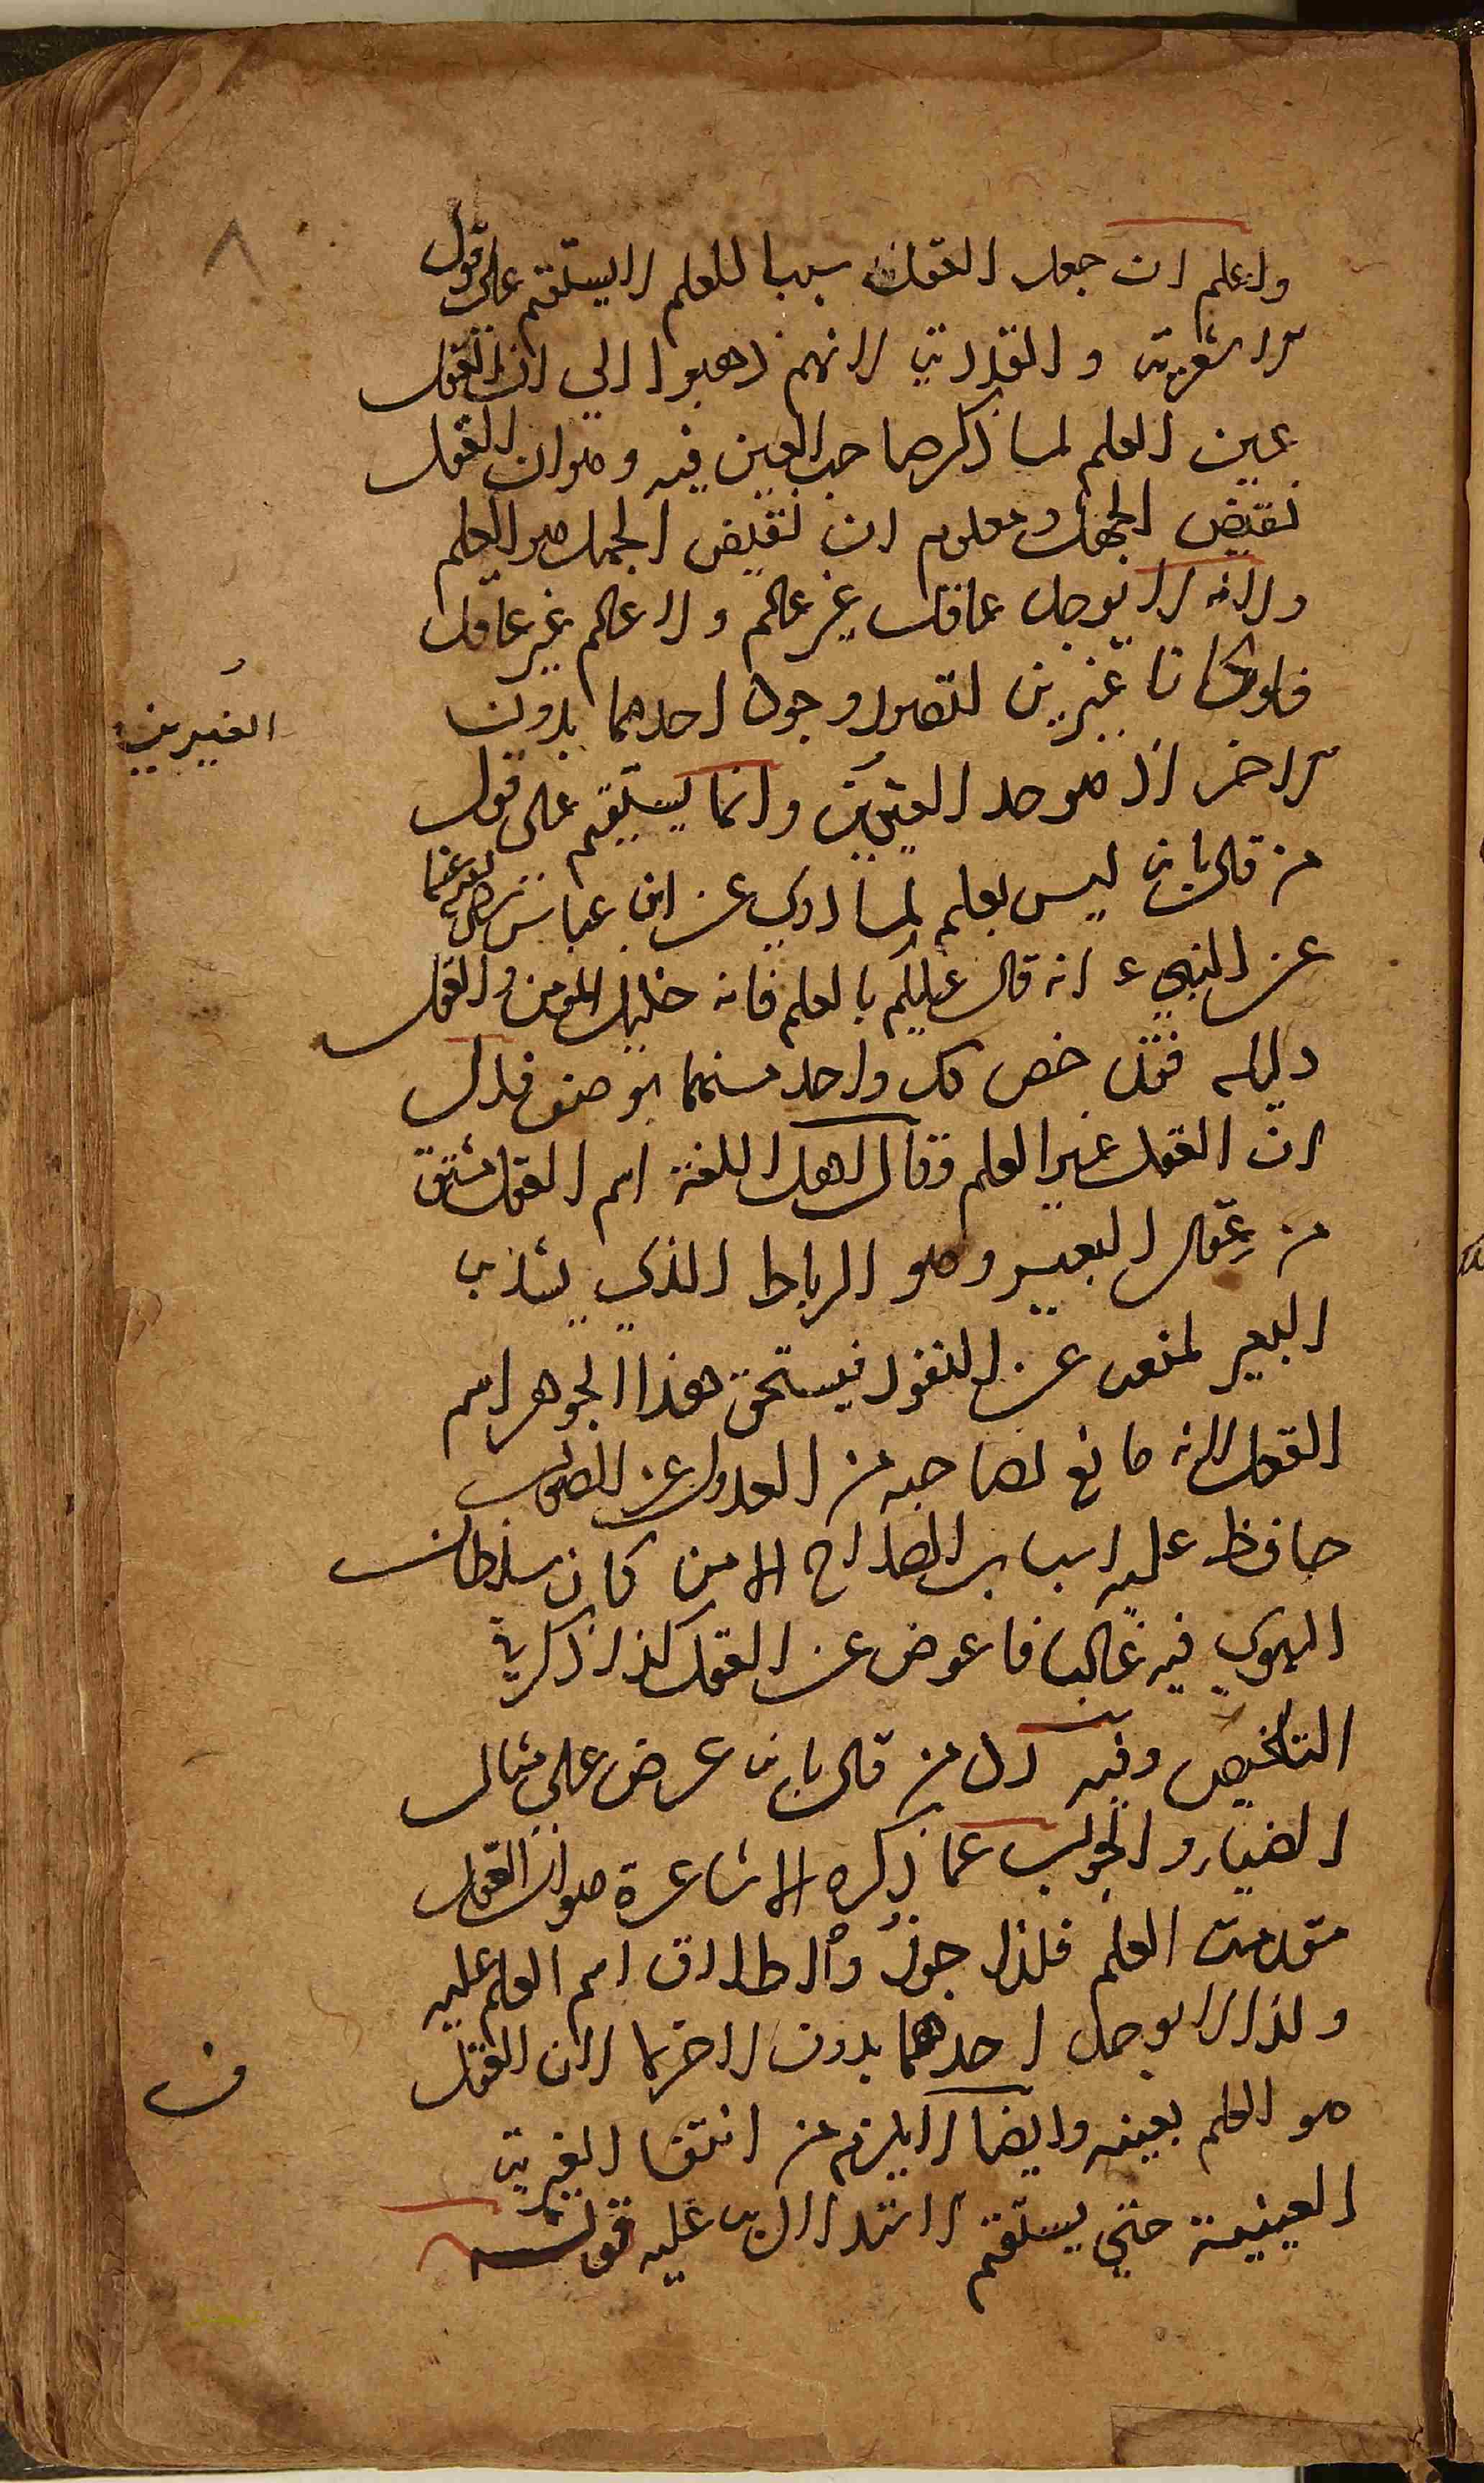 ٨
واعلم ان جعل العقل سببا للعلم لا يستقيم على قول
الاشعرية والقدرية لانهم ذهبوا الي ان العقل
عين العلم لما ذكر صاحب العين فيه وهو ان العقل
نقيض الجهل ومعلوم ان نقيض الجهل هو العلم
ولانه لا يوجد عاقل غير عالم ولا عالم غير عاقل
فلو كانا غيرين لتصور وجود احدهما بدون
الاخر اذ هو حد الغيرين وانما يستقيم على قول
الغيرين
من قال بانه ليس بعلم لما روي عن ابن عباس رضى الله عنهما
عن النبي ع انه قال عليكم بالعلم فانه خليل المومن والعقل
دليله فقد خص كل واحد منهما بوصف فدل
ان العقل غير العلم وقال اهل اللغة اسم العقل مشتق
من عقال البعير وهو الرباط الذي يشد به
البعير لمنعه عن النفور فيستحق هذا الجوهر اسم
العقل لانه مانع لصاحبه من العدول عن الصواب
حافظ عليه اسباب الصلاح الا من كان سلطان
الهوي فيه غالبا فاعرض عن العقل كذا ذكر في
التلخيص وفيه رد من قال بانه عرض على مثال
الضياء والجواب عما ذكره الاشاعرة هو ان العقل
مقدمة العلم فلذا جوزوا اطلاق اسم العلم عليه
ولذا لا يوجد احدهما بدون الاخر لا لان العقل
هو العلم بعينه وايضا لا يلزم من انتفا الغيرية
العينية حتي يستقيم الاستدلال به عليه قوله